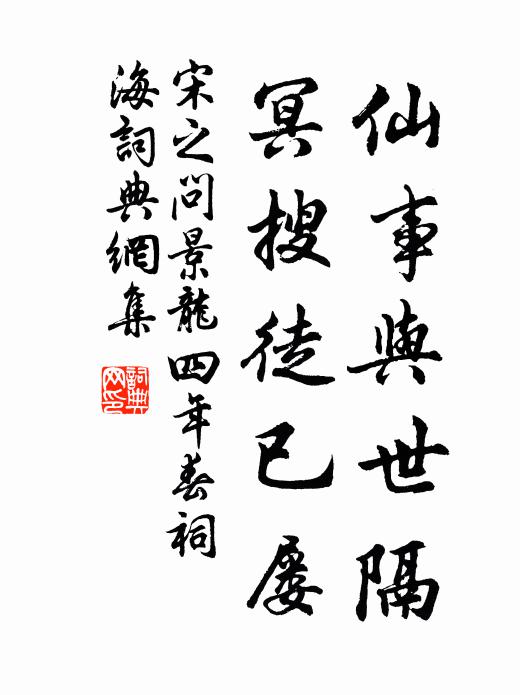 仙事與世隔
冥搜徒已屡
宋之问景龍四年春祠
海詞典網集
詞典
网印